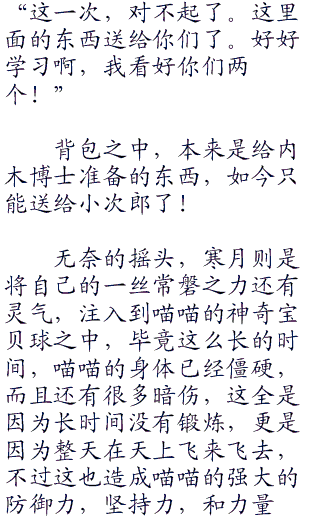 “这一次，对不起了。这里
面的东西送给你们了。好好
学习啊，我看好你们两
个！”
背包之中，本来是给内
木博士准备的东西，如今只
能送给小次郎了！
无奈的摇头，寒月则是
将自己的一丝常磐之力还有
灵气，注入到喵喵的神奇宝
贝球之中，毕竟这么长的时
间，喵喵的身体已经僵硬，
而且还有很多暗伤，这全是
因为长时间没有锻炼，更是
因为整天在天上飞来飞去，
不过这也造成喵喵的强大的
防御力，坚持力，和力量